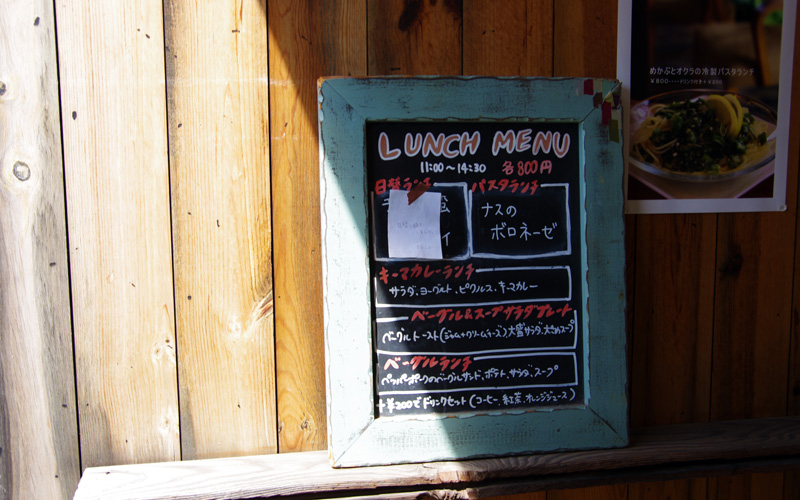 めかぶとオクラの冷製パスタランチ
LUNCH MENU
11:00〜14:30 各800円
日替ランチ パスタランチ
ナスの
ボロネーゼ
キーマカレーランチ
サラダ、ヨーグルト、ピクルス、キーマカレー
ベーグル&スープサラダプレート
ベーグルトースト(ジャム+クリームチーズ)大盛サラダ、大きめスープ
ベーグルランチ
ペッパーポークのベーグルサンド、ポテト、サラダ、スープ
+¥200でドリンクセット(コーヒー、紅茶、オレンジジュース)